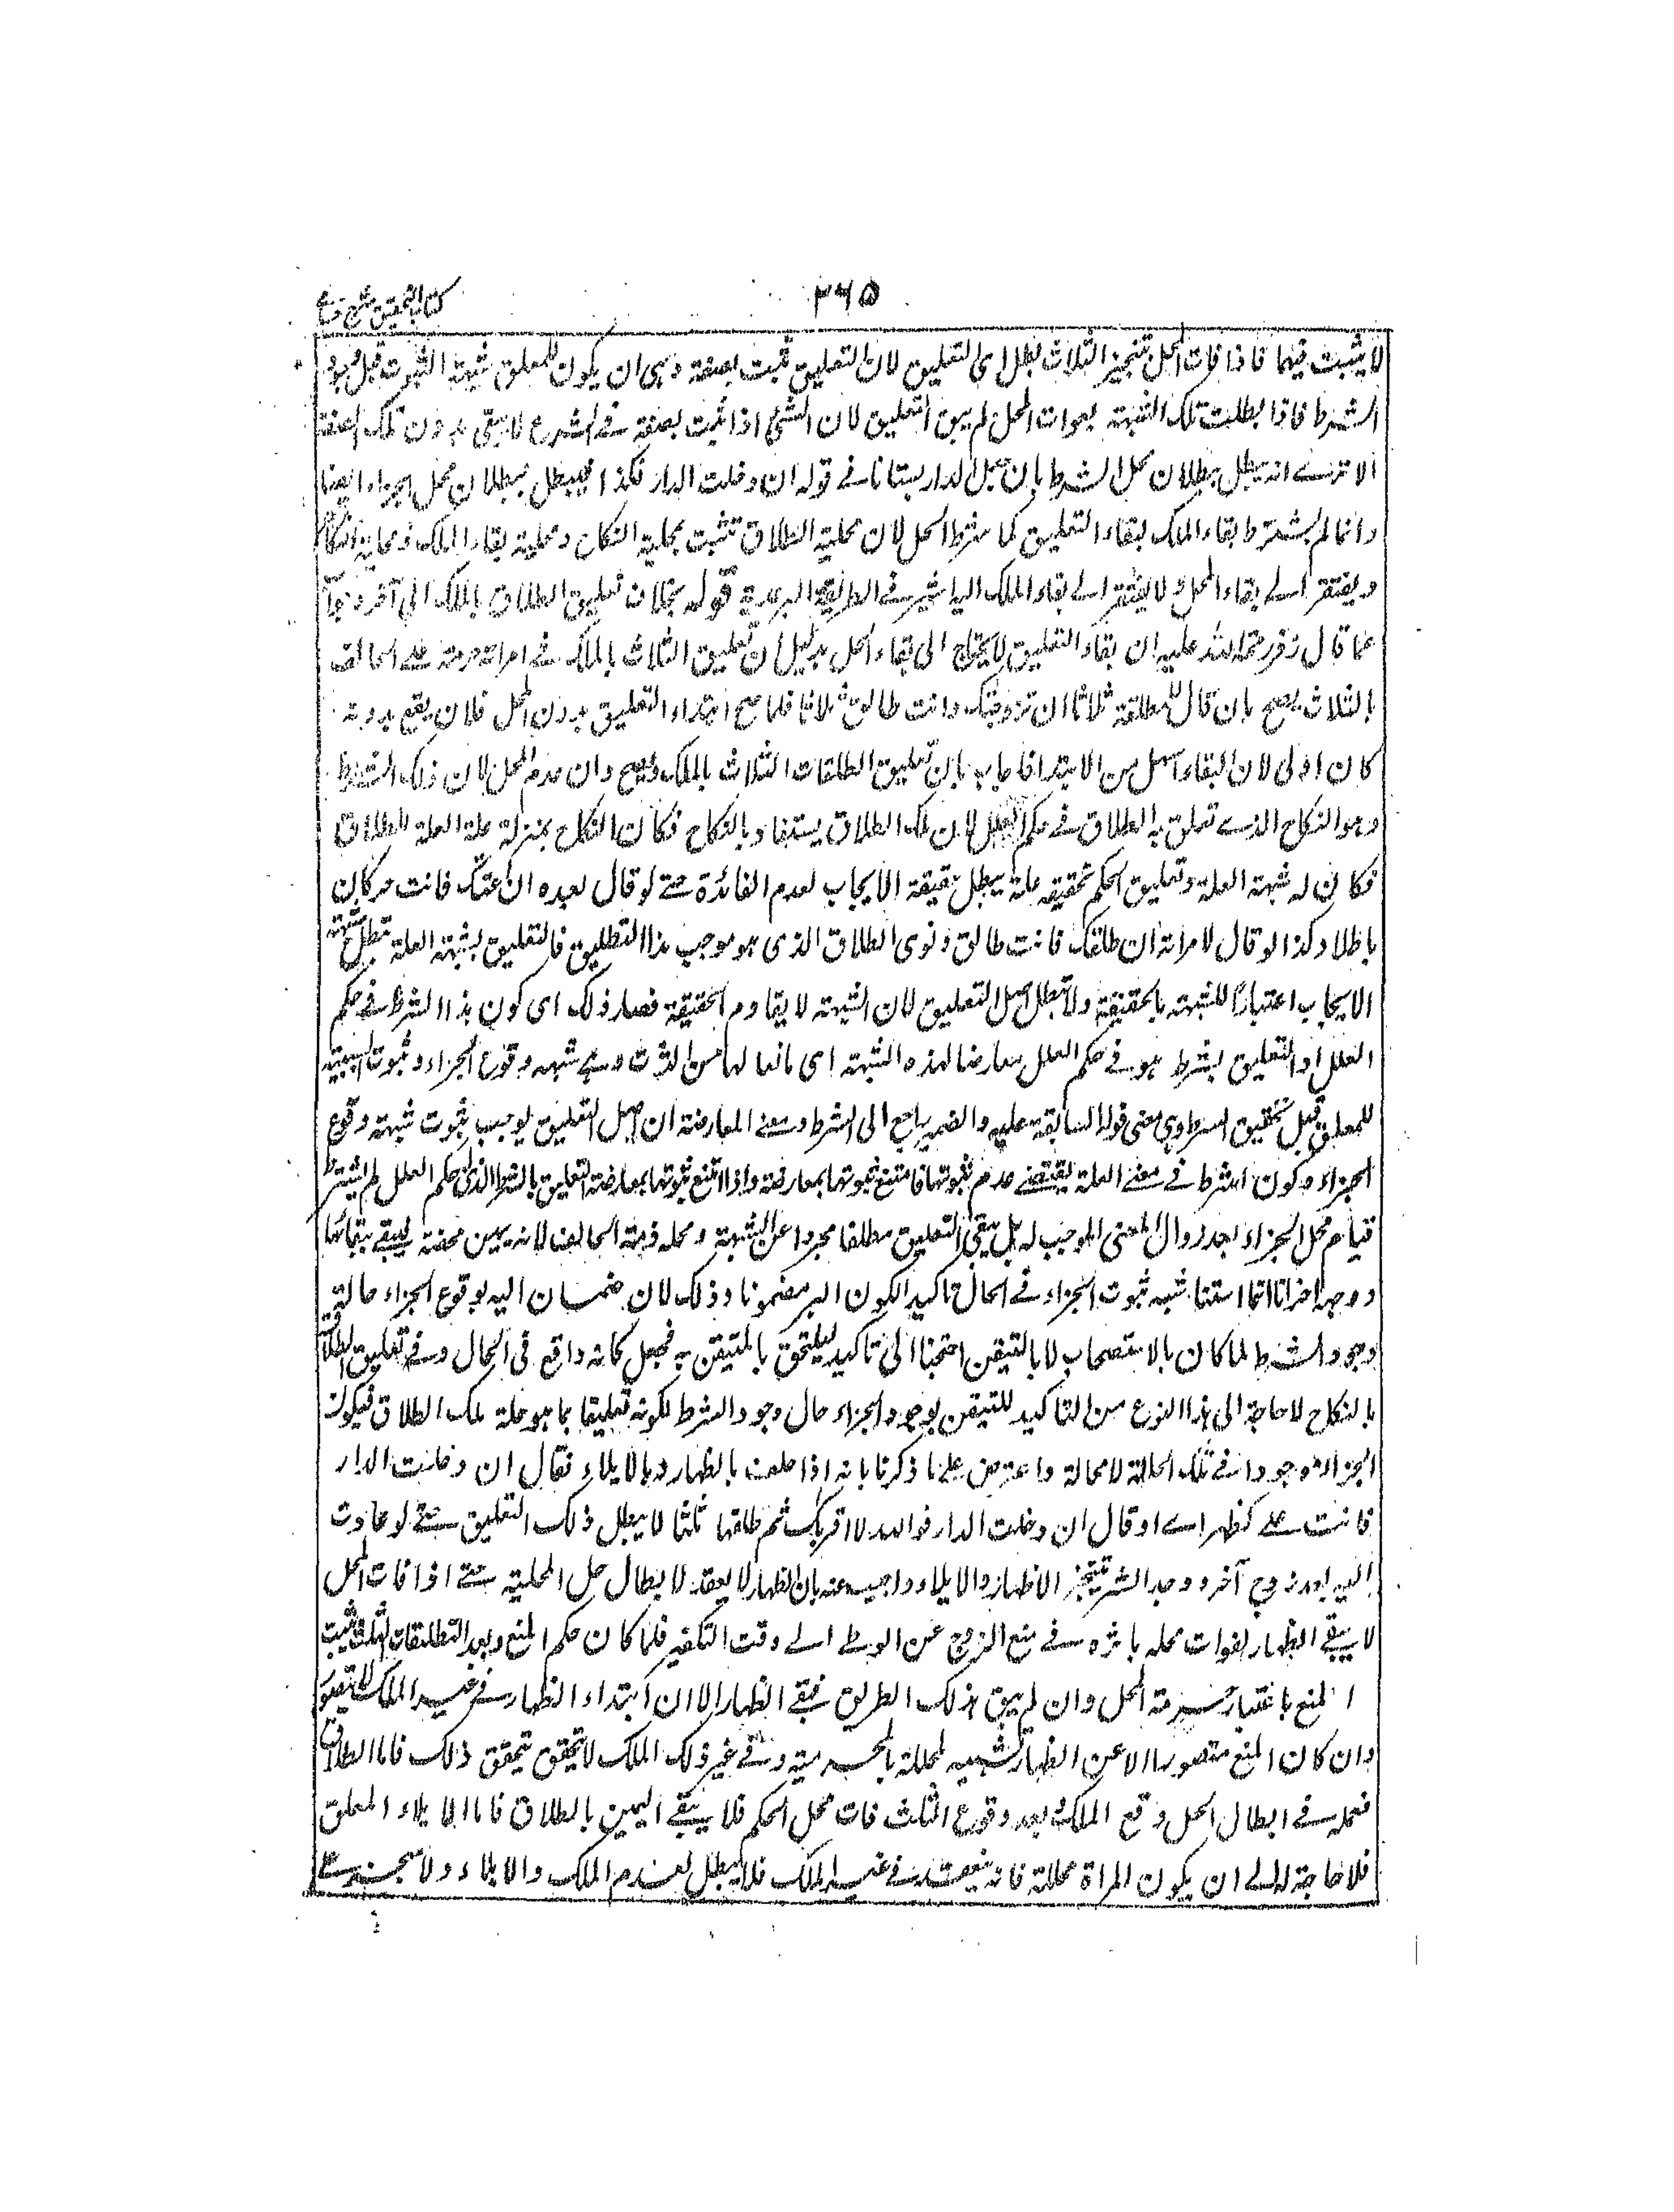 كتاب التحقيق شرح
٢٦٥
لا يثبت فيما فاذا فات المحل بتنجيز الثلاث بطل اى التعليق لان التعليق ثبت بصفة وهى ان يكون للمعلق شبهة الثبوت قبل وجود
الشرط فاذا بطلت تلك الشبهة بفوات المحل لم يبق التعليق لان الشئ اذا ثبت بصفة فى الشرع لا يبقى بدون تلك الصفة
الا ترے انه يبطل ببطلان محل الشرط بان جعل الدار بستانا فى قوله ان دخلت الدار فكذا فيبطل ببطلان محل الجزاء ايضا
وانما لم يشترط بقاء الملك لبقاء التعليق كما شرط المحل لان محلية الطلاق تثبت بمحلية النكاح ومحلية بقاء الملك
ويفتقر الے بقاء المحل ولا يفتقر الے بقاء الملك اليه اشير فى الطريقة البرغرية قوله بخلاف تعليق الطلاق بالملك الى آخره جواب
عما قال زفر رحمة الله عليه ان بقاء التعليق لا يحتاج الى بقاء المحل بدليل ان تعليق الثلاث بالملك فى امراة حرمت على الحالف
بالثلاث يصح بان قال للمطلقة ثلاثا ان تزوجتك وانت طالق ثلاثا فلما صح ابتداء التعليق بدون المحل فلان يقع بدونه
كان اولى لان البقاء اسهل من الابتداء فاجاب بان تعليق الطلقات الثلاث بالملك يصح وان عدم المحل لان ذلك الشرط
وهو النكاح الذے تعلق به الطلاق فى حكم العلل لان ملك الطلاق يستفاد بالنكاح فكان النكاح بمنزلة علة العلة للطلاق
فكان له شبهة العلة وتعليق الحكم بحقيقة علته يبطل حقيقة الايجاب لعدم الفائدة حتے لو قال لعبده ان اعتقتك فانت حر كان
باطلا وكذا لو قال لامراته ان طلقتك فانت طالق ونوى الطلاق الذى هو موجب هذا التطليق فالتعليق بشبهة العلة تبطل شبهة
الايجاب اعتبارا للشبهة بالحقيقة ولا تبطل اصل التعليق لان الشبهة لا يقاوم الحقيقة فصار ذلك اى كون هذا الشرط فى حكم
العلل او التعليق بشرط هو فى حكم العلل معارضا لهذه الشبهة اى مانعا لها من الثبوت وهے شبهة وقوع الجزاء وثبوت السببية
للمعلق قبل تحقيق الشرط وهى معنى قوله السابقة عليه والضمير راجع الى الشرط ومعنے المعارضة ان اصل التعليق يوجب ثبوت شبهة وقوع
الجزاء وكون الشرط فى معنے العلة يقتضے عدم ثبوتها فامتنع ثبوتها بمعارضته واذا امتنع ثبوتها بمعارضة التعليق بالشرط الذى فى حكم العلل لم يشترط
قيام محل الجزاء لعدم زوال المعنى الموجب له بل يبقى التعليق مطلقا مجردا عن الشبهة ومحله ذمة الحالف لانه يمين محضة فيبقے ببقائها
ووجه اخر انا انما استثنا شبه ثبوت الجزاء فى الحال تاكيدا لكون البر مضمونا وذلك لان ضمان البر بوقوع الجزاء حالة
وجود الشرط لما كان بالاستصحاب لا بالتيقن احتجنا الى تاكيد ليلتحق بالمتيقن به فجعل كانه واقع فى الحال وفے تعليق الطلاق
بالنكاح لا حاجة الى هذا النوع من التاكيد للتيقن بوجود الجزاء حال وجود الشرط لكونه تعليقا بما هو علة ملك الطلاق فيكون
الجزاء موجودا فى تلك الحالة لا محالة واعترض على ما ذكرنا بانه اذا حلف بالظهار او بالايلاء فقال ان دخلت الدار
فانت علے كظهر امے او قال ان دخلت الدار فوالله لا اقربك ثم طلقها ثلثا لا يبطل ذلك التعليق حتے لو عادت
اليه بعد زوج آخر ووجد الشرط يتنجز الظهار والايلاء واجيب عنه بان الظهار لا يعقد لابطال حل المحلية حتے اذا فات المحل
لا يبقے الظهار لفوات محله بل تاثيره فى منع الزوج عن الوطے الے وقت التكفير فلما كان حكم المنع وبعد التطليقات الثلث يثبت
المنع باعتبار حرمة المحل وان لم يبق بذلك الطريق فبقے الظهار الا ان ابتداء الظهار فى غير الملك لا يتصور
وان كان المنع متصورا الا عن الظهار تشبيه المحللة بالمحرمية وفى غير ذلك الملك لا يتحقق تحقق ذلك فاما الطلاق
فعمله فى ابطال الحل وقع الملك وبعد وقوع الثلث فات محل الحكم فلا يبقے اليمين بالطلاق فاما الايلاء المعلق
فلا حاجة له الے ان يكون المراة محللة فانه ينعقد فى غير الملك فلا يبطل لعدم الملك والايلاء ولا